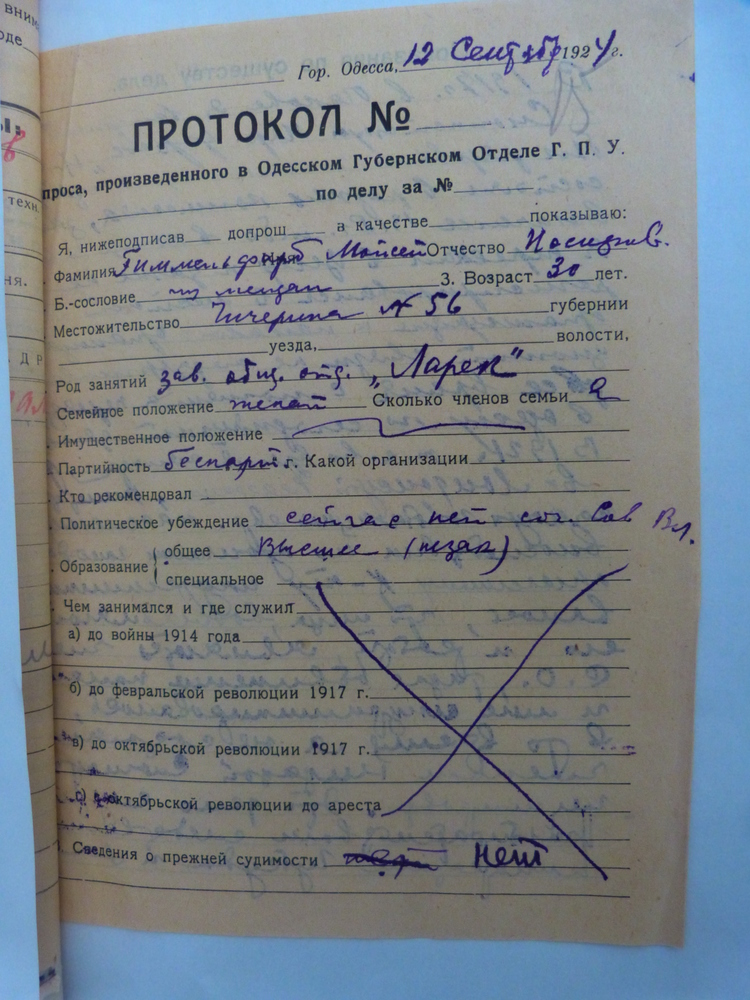 Гор. Одесса, 12 Сентября 1924 г.
ПРОТОКОЛ №
проса, произведенного в Одесском Губернском Отделе Г. П. У.
по делу за №
Я, нижеподписав допрош в качестве показываю:
Фамилия Гиммельфарб Имя Мойсей Отчество
Б.-сословие из мещан 3. Возраст 30 лет.
Местожительство Чичерина № 56 губернии
уезда, волости,
Род занятий зав. общ. отд. „Ларек"
Семейное положение женат Сколько членов семьи 2
Имущественное положение
Партийность беспарт г. Какой организации
Кто рекомендовал
Политическое убеждение сейчас нет соч. Сов Вл.
Образование { общее Высшее (незак)
специальное
Чем занимался и где служил
а) до войны 1914 года
б) до февральской революции 1917 г.
в) до октябрьской революции 1917 г.
с) с октябрьской революции до ареста
Сведения о прежней судимости нет